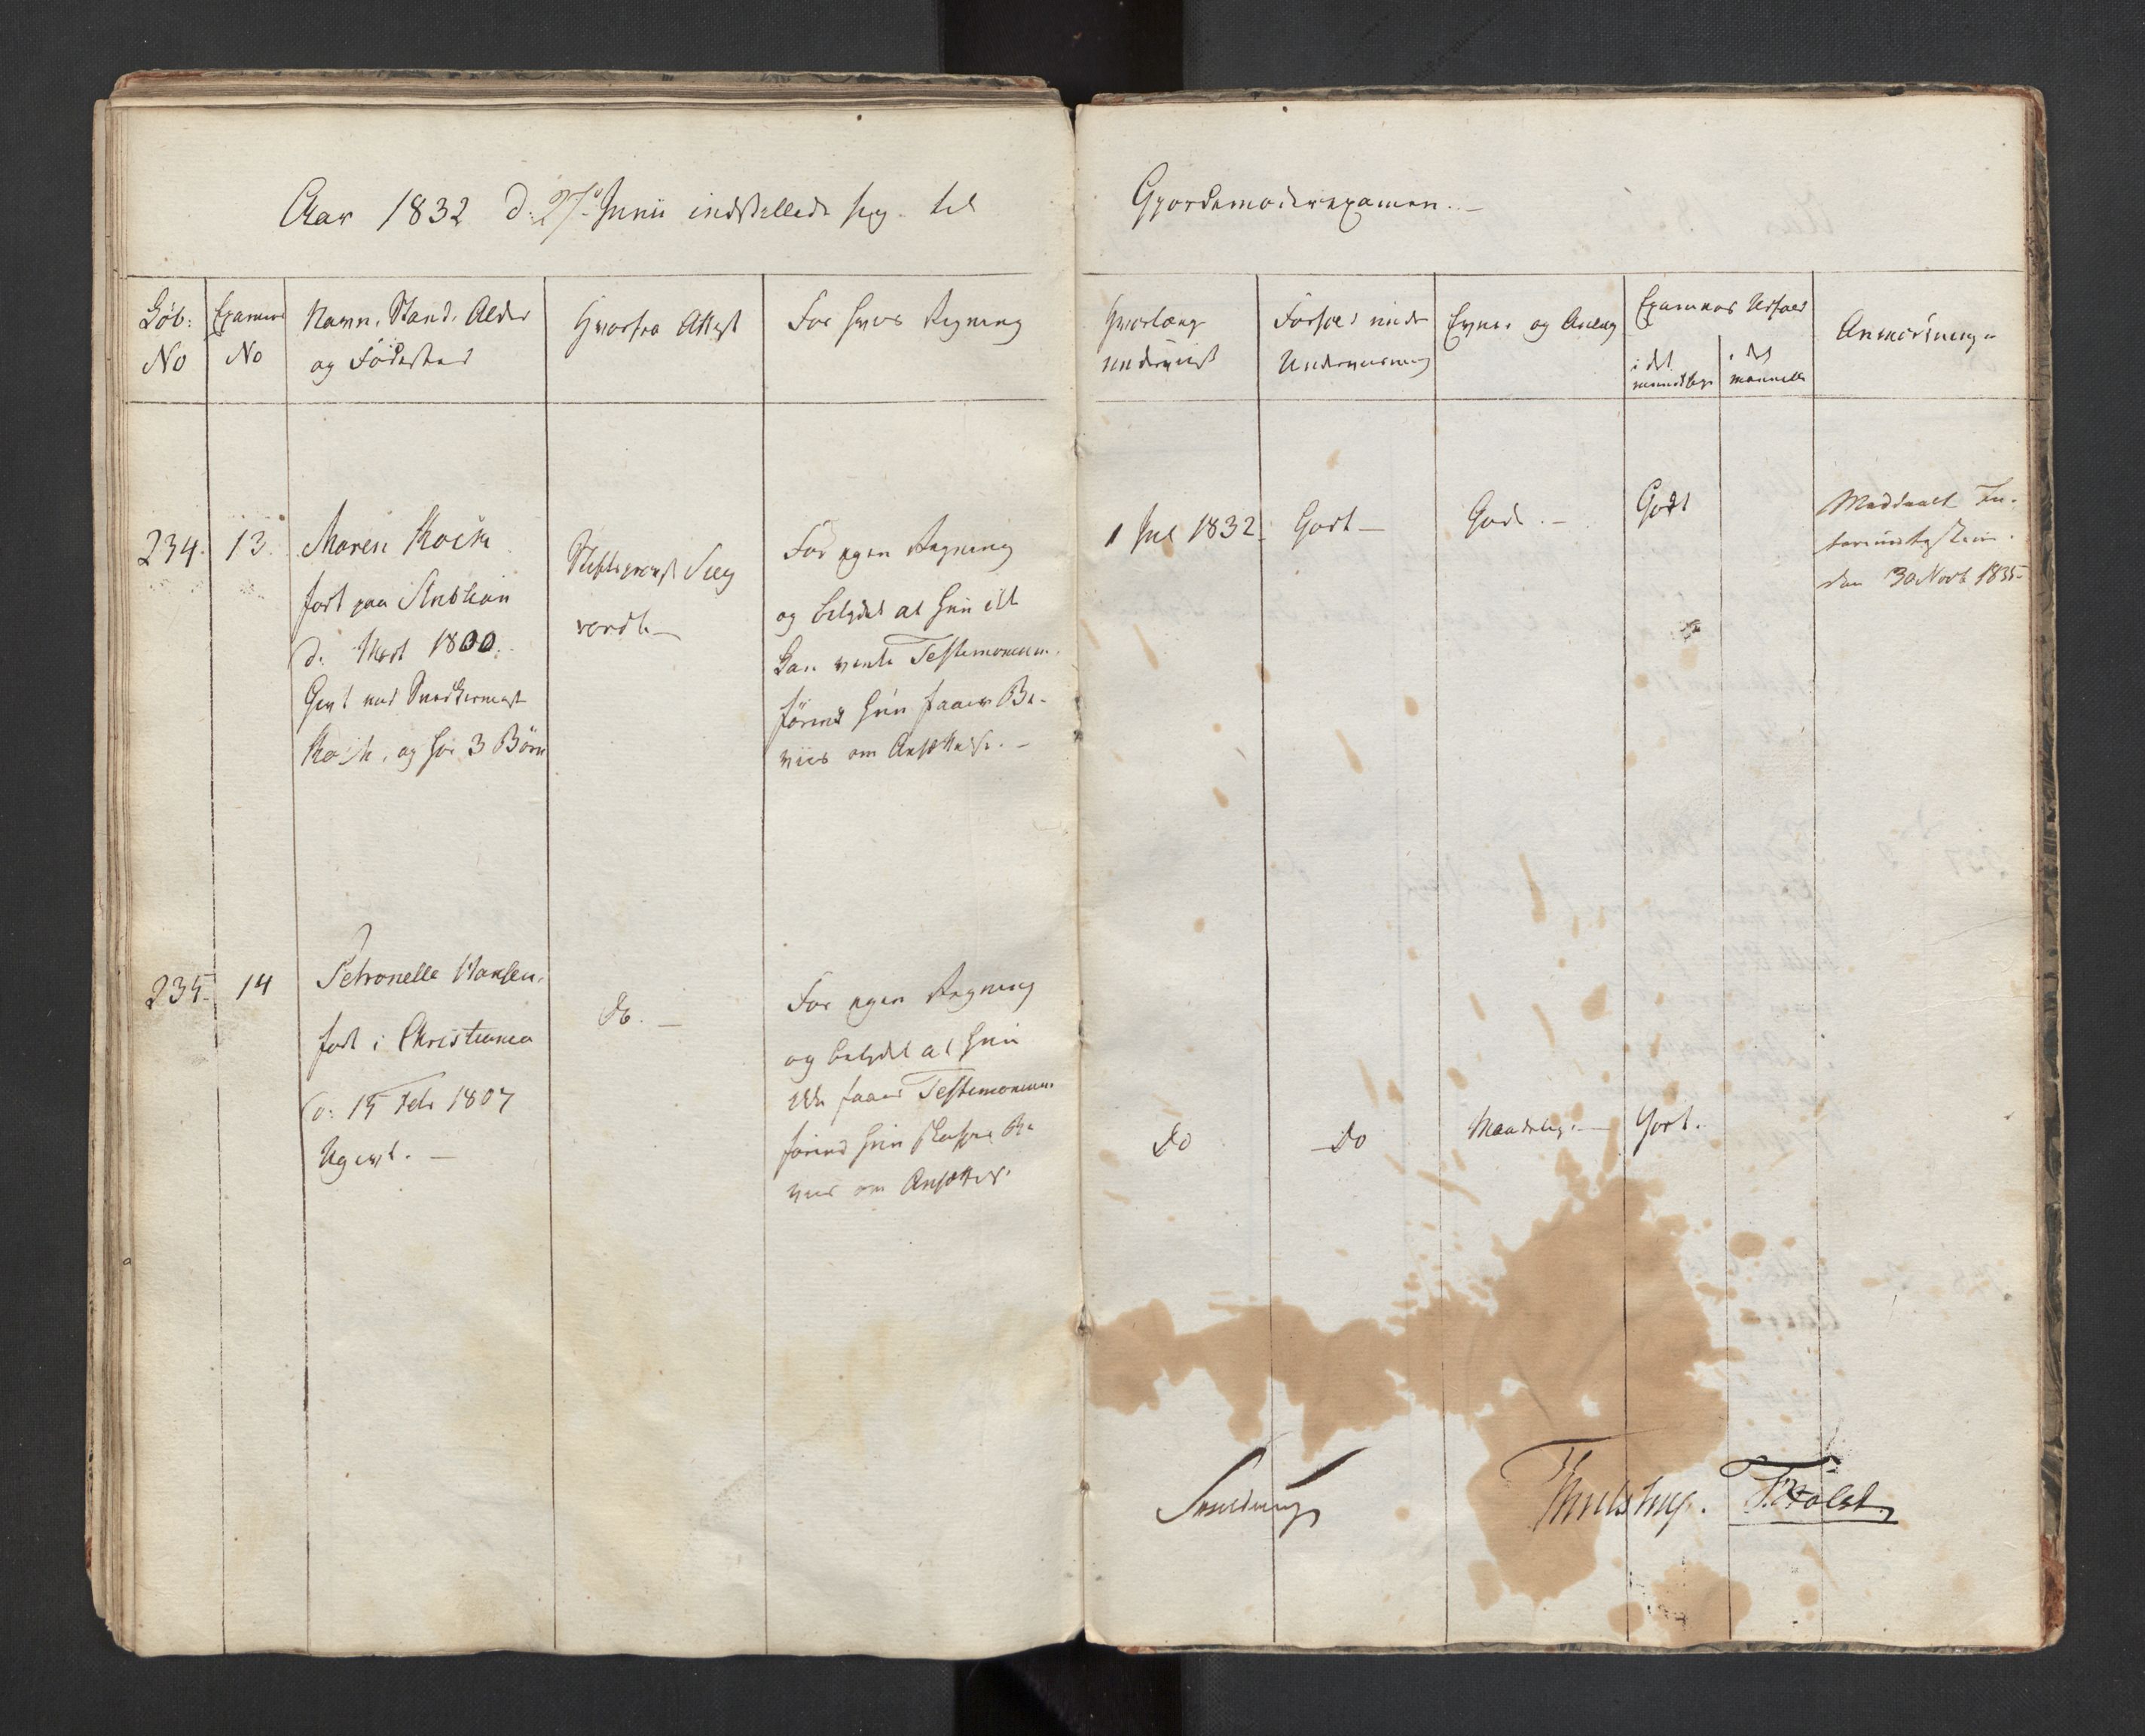 Aar 1832 d: 27de Junii indstellede sig til
Gjordemoderexamen. –
Løb:
No
Examens
No
Navn, Stand, Alder
og Födested
Hvorfra Attest
For hvis Regning
Hvorlænge
underviist
Forhold under
Underviisning
Evner og Anlæg
Examens Udfald
i det
mundtlige
i det
manuelle
Anmærkninger
234.
13.
Maren Koch
født paa
d. Mart 1800.
Gift med Snedkermest
Koch, og har 3 Börn
For egen Regning
og betydet at hun ikke
kan vente Testemonium,
förend hun faaer Be-
viis om Ansættelse. –
1 Jul 1832
Godt –
Gode. –
Godt
Meddeelt
den 30 Novb 1835
235.
14
Petronelle Hansen,
født i Christiania
d: 15 Feb 1807
Ugivt. –
do. –
For egen Regning
og betydet at hun
ikke faaer Testemonium
förend hun skaffer Be
viis om Ansættelse.
do
do
Maadelige. –
Godt.
Thulstrup.
F. Holst